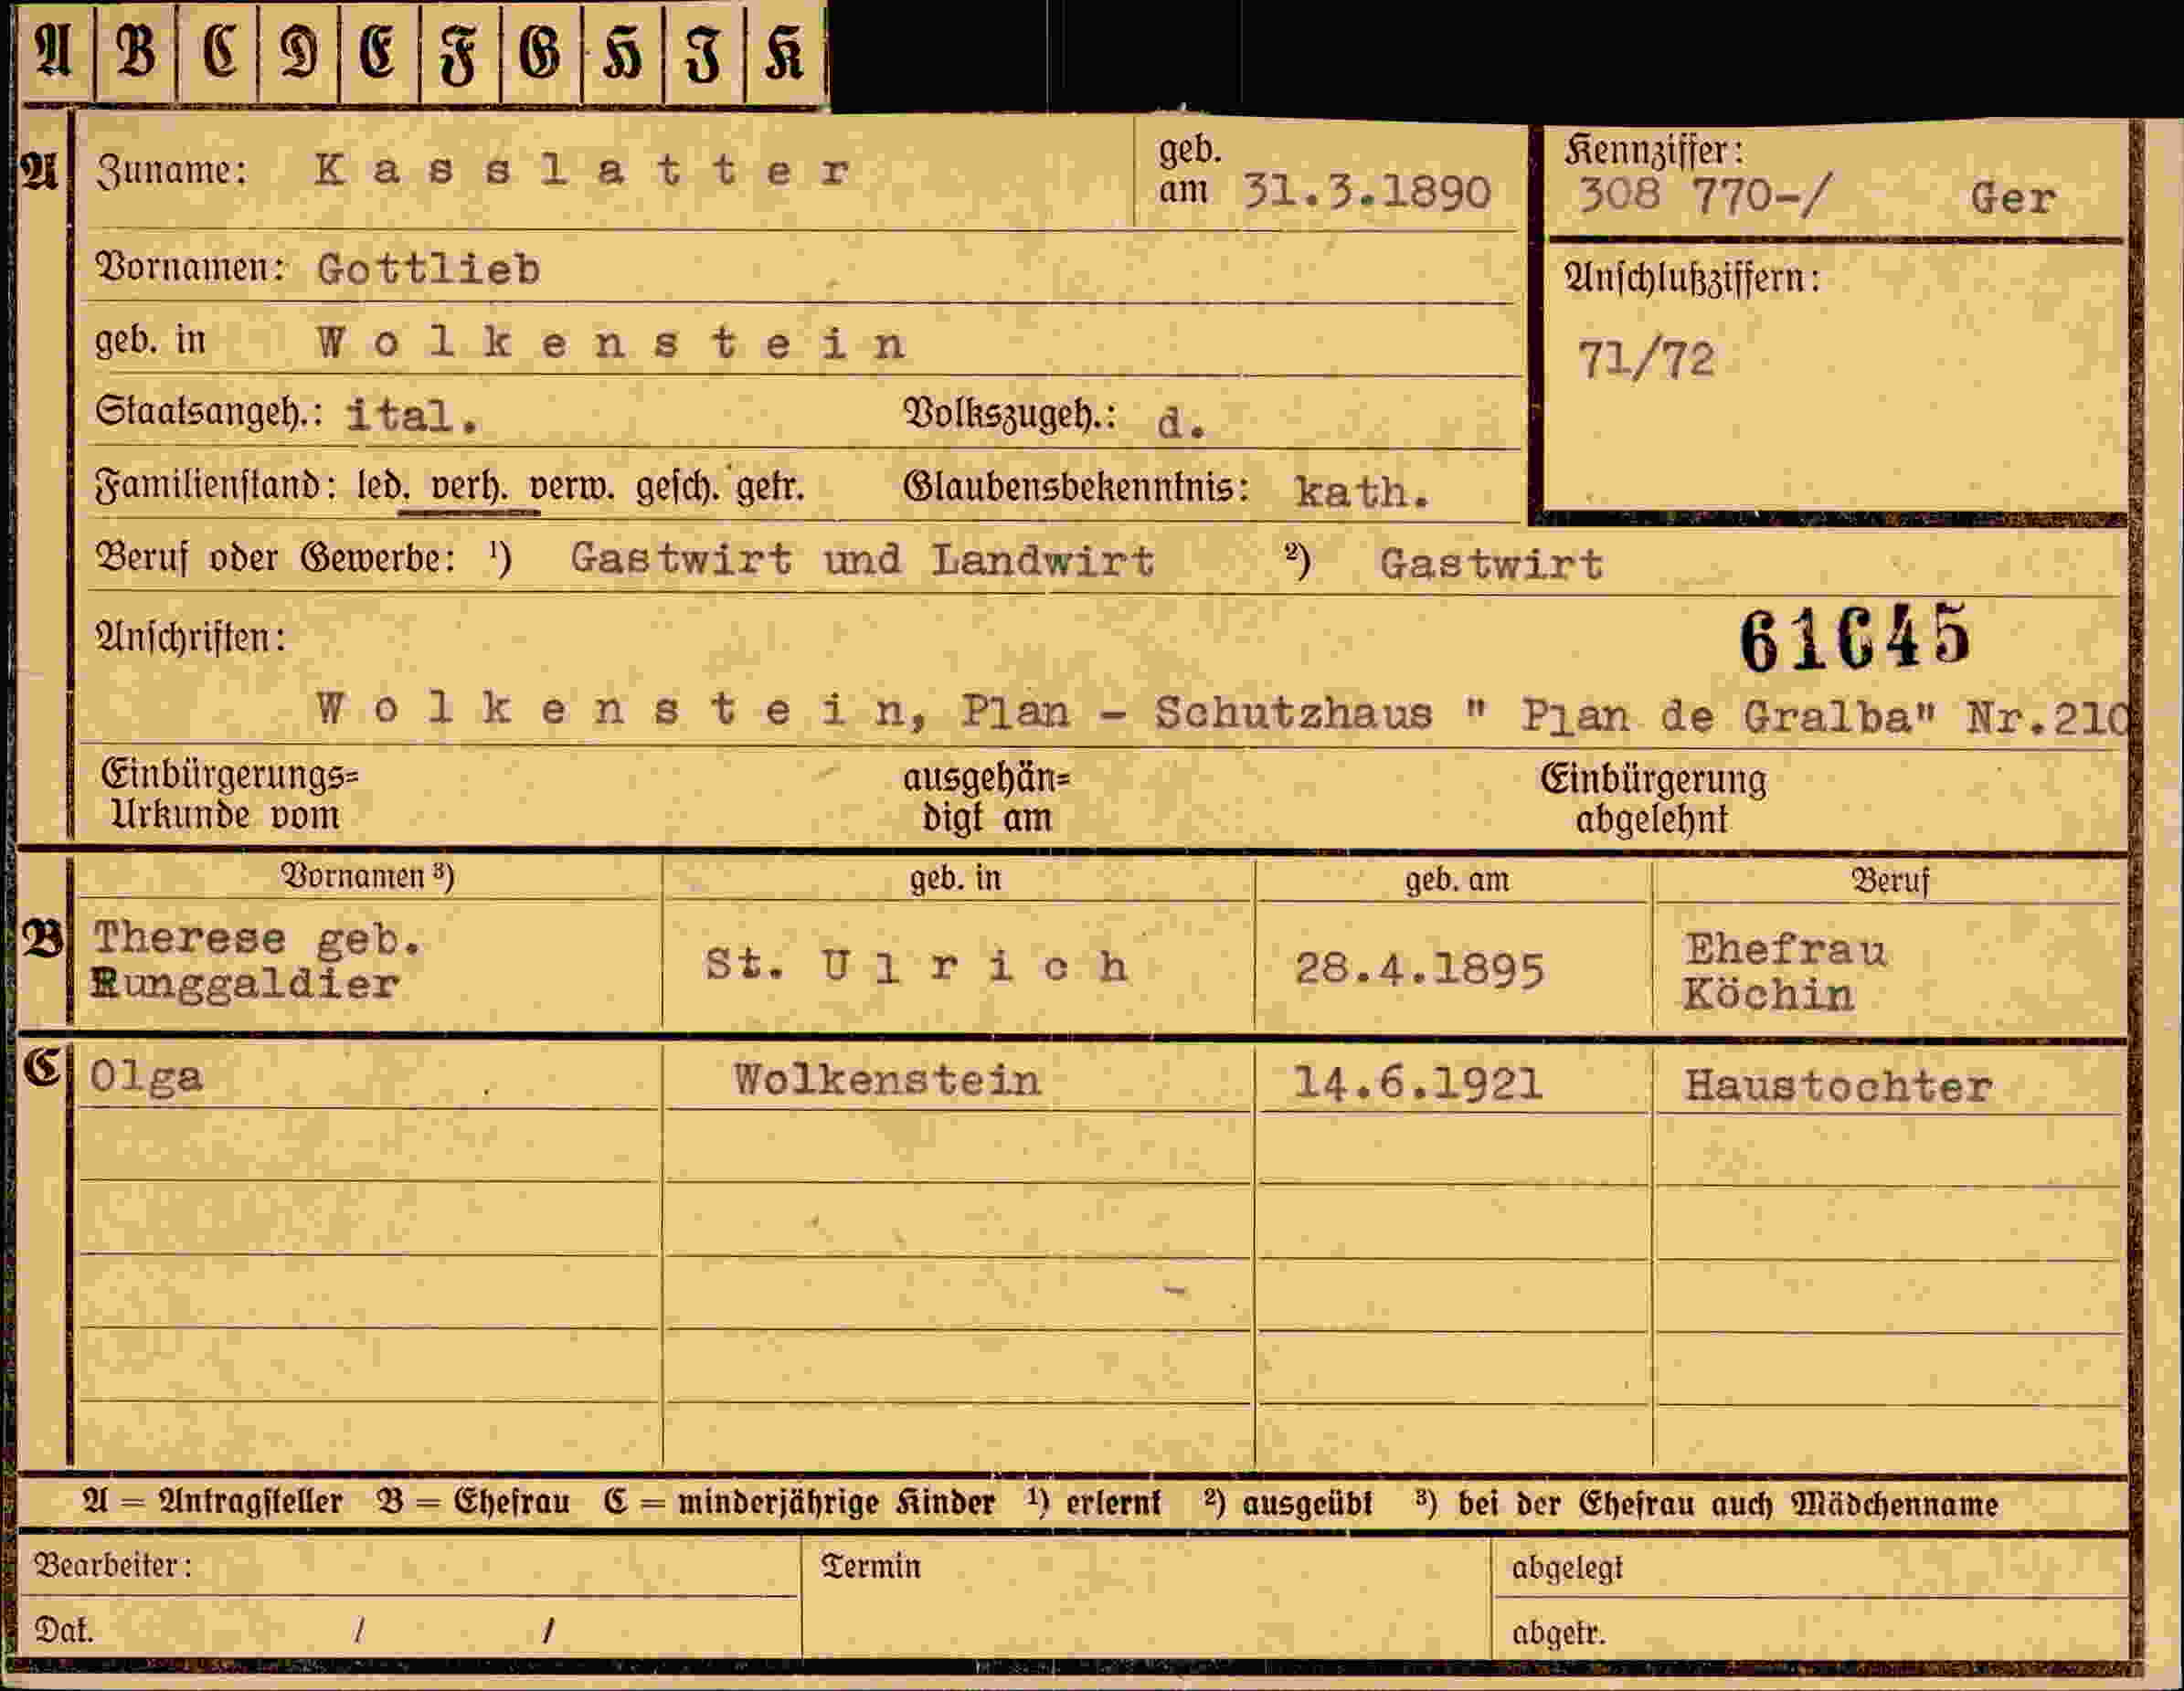 A B C D E F G H I K
A Zuname: Kasslatter geb. am 31.3.1890 Kennziffer: 308 770-/ Ger
Vornamen: Gottlieb Anschlußziffern:
geb. in Wolkenstein 71/72
Staatsangeh.: ital. Volkszugeh.: d.
Familienstand: led. verh. verw. gesch. getr. Glaubensbekenntnis: kath.
Beruf oder Gewerbe: ¹) Gastwirt und Landwirt ²) Gastwirt
Anschriften: 61645
Wolkenstein, Plan - Schutzhaus " Plan de Gralba" Nr.210
Einbürgerungs= ausgehän= Einbürgerung
Urkunde vom digt am abgelehnt
Vornamen ³) geb. in geb. am Beruf
B Therese geb. St. Ulrich 28.4.1895 Ehefrau
Runggaldier Köchin
C Olga Wolkenstein 14.6.1921 Haustochter
A = Antragsteller B = Ehefrau C = minderjährige Kinder ¹) erlernt ²) ausgeübt ³) bei der Ehefrau auch Mädchenname
Bearbeiter: Termin abgelegt
Dat. / / abgetr.